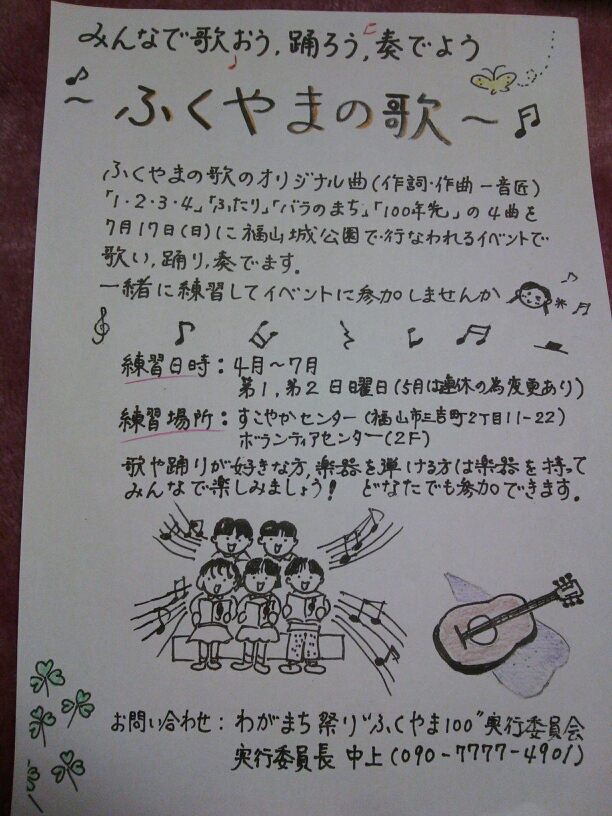 みんなで歌おう,踊ろう,奏でよう
~ ふくやまの歌 ~
ふくやまの歌のオリジナル曲(作詞・作曲 一音匠)
「1・2・3・4」「ふたり」「バラのまち」「100年先」の4曲を
7月17日(日)に福山城公園で行なわれるイベントで
歌い,踊り,奏でます。
一緒に練習してイベントに参加しませんか
練習日時:4月~7月
第1,第2日曜日(5月は連休の為変更あり)
練習場所:すこやかセンター(福山市三吉町2丁目11-22)
ボランティアセンター(2F)
歌や踊りが好きな方,楽器を弾ける方は楽器を持って
みんなで楽しみましょう! どなたでも参加できます。
お問い合わせ:わがまち祭り"ふくやま100"実行委員会
実行委員長 中上(090-7777-4901)